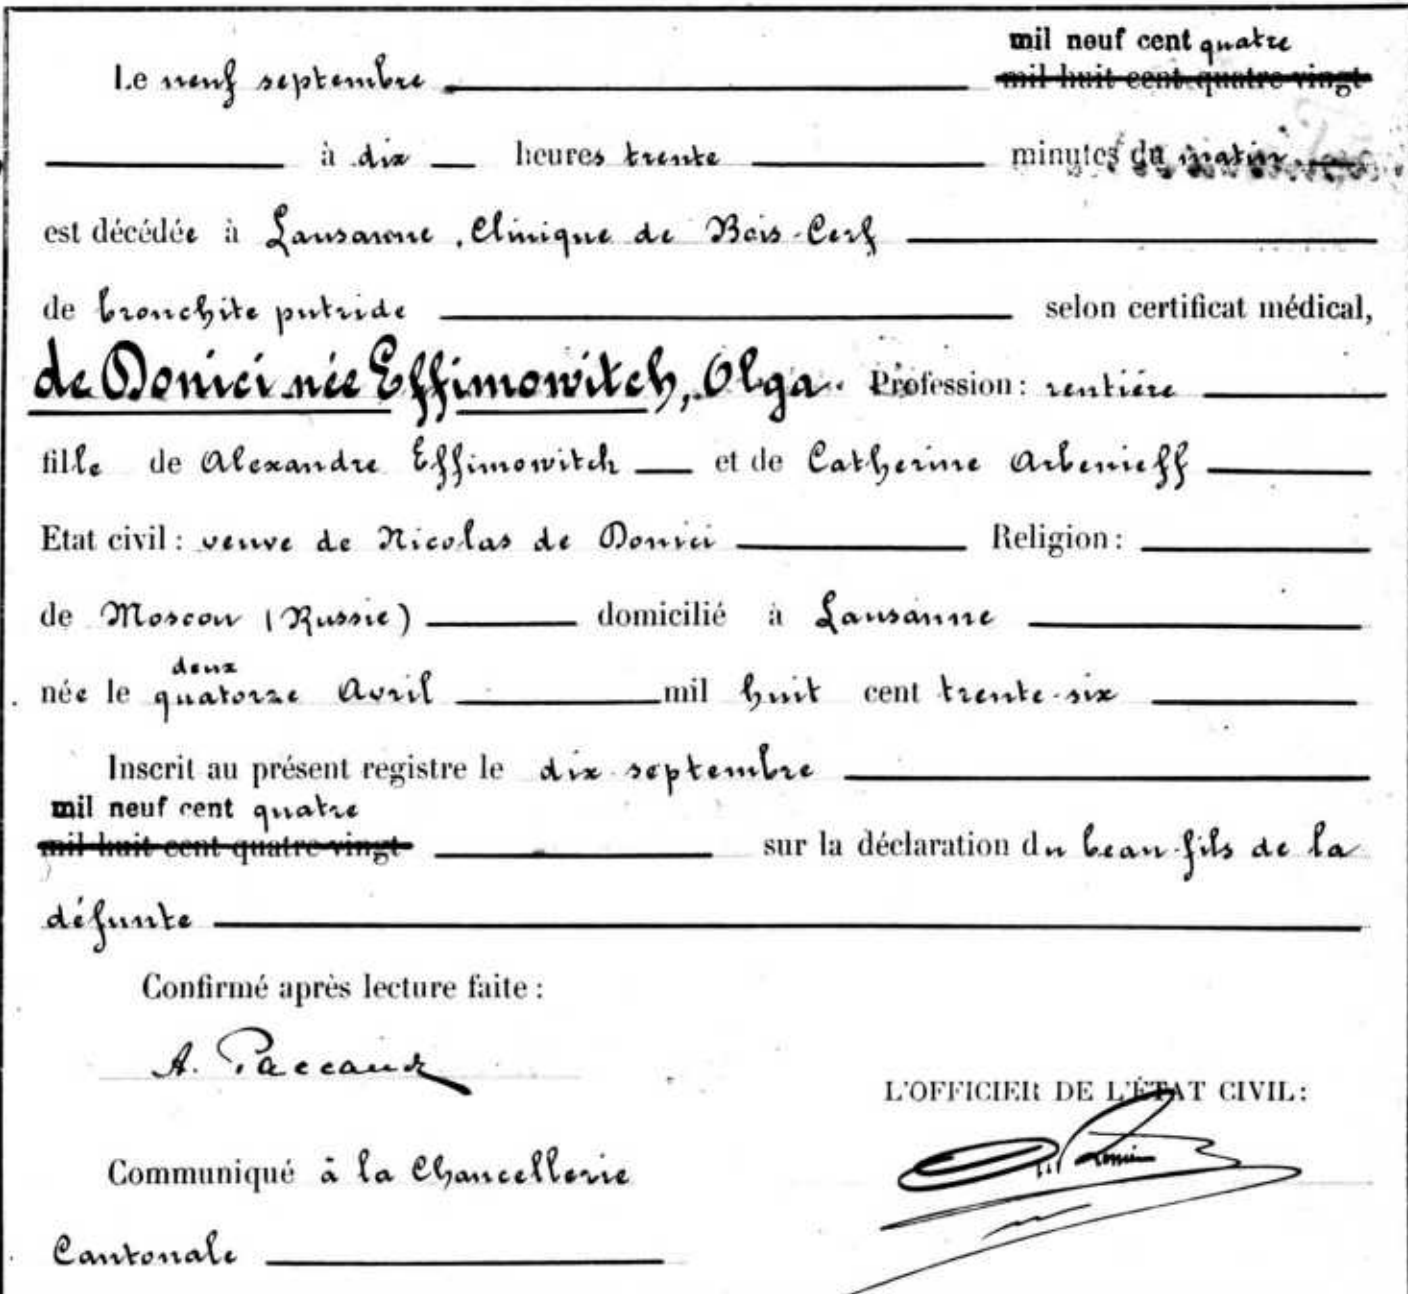 mil neuf cent quatre
Le neuf septembre mil huit cent quatre vingt
à dix heures trente minutes du matin
est décédée à Lausanne, Clinique de Bois-Cerf
de bronchite putride selon certificat médical,
de Donici née Effimowitch, Olga. Profession: rentière
fille de Alexandre Effimowitch et de Catherine Arbenieff
Etat civil: veuve de Nicolas de Donici Religion:
de Moscou (Russie) domicilié à Lausanne
deux
née le quatorze Avril mil huit cent trente-six
Inscrit au présent registre le dix septembre
mil neuf cent quatre
mil huit cent quatre vingt sur la déclaration du beau-fils de la
défunte
Confirmé après lecture faite:
A. Paccaud
L'OFFICIER DE L'ÉTAT CIVIL:
Communiqué à la Chancellerie
Cantonale